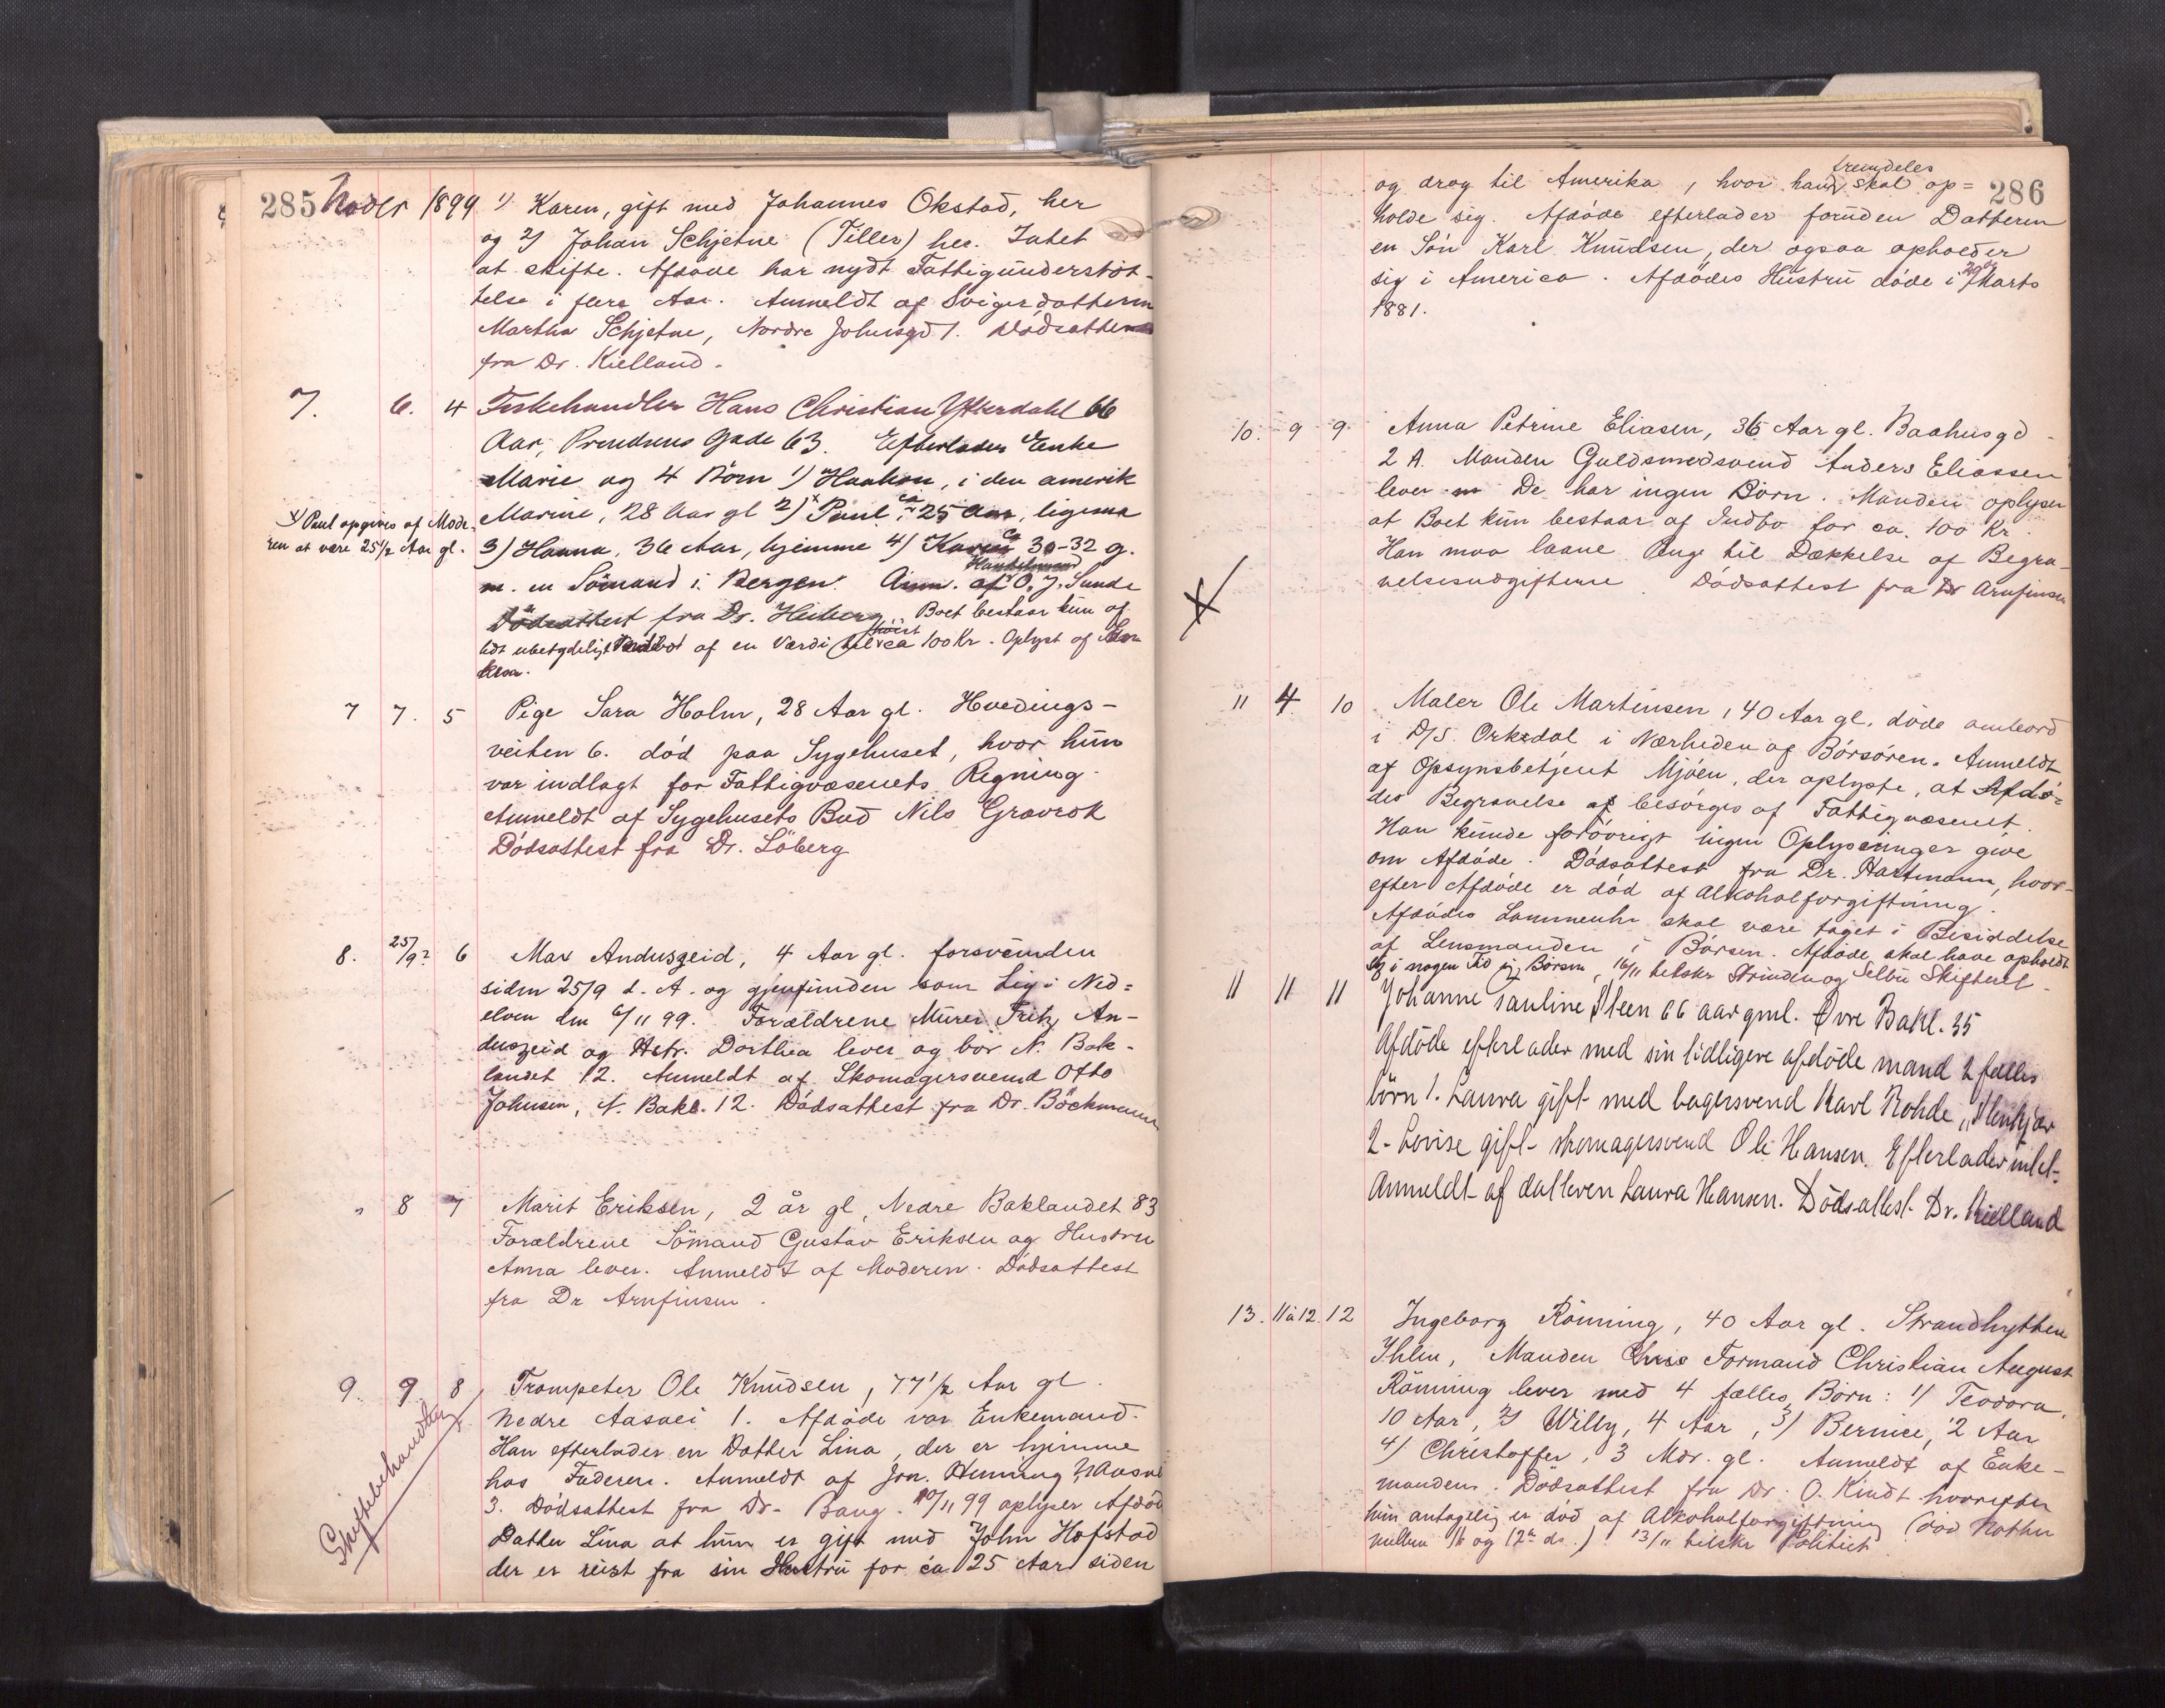 285 Novbr 1899 1) Karen, gift med Johannes Okstad, her
og 2) Johan Schjetne (Tiller) her. Intet
at skifte. Afdøde har nydt Fattigunderstöt-
telse i flere Aar. Anmeldt af Svigerdatteren
Martha Schjetne, Nordre Johnsgd 1. Dödsattest
fra Dr. Kielland.
7. 6. 4 Fiskehandler Hans Christian Ytterdahl 66
Aar, Prindsens Gade 63. Efterlader Enke
Marie og 4 Börn 1) Haakon, i den amerik
Marine, 28 Aar gl 2) x Paul, ca 25 Aar, ligesaa
x) Paul opgives af Mode-
ren at være 25 1/2 Aar gl.
3) Hanna, 36 Aar, hjemme 4) Karen ca 30-32 g.
m. en Sömand i Bergen. Anm. af O. J. Sunde
Dödsattest fra Dr. Heiberg. Boet bestaar kun af
lidt ubetydeligt Indbo af en Værdi höist ca 100 Kr. Oplyst af En-
ken.
7 7. 5 Pige Sara Holm, 28 Aar gl. Hvedings-
veiten 6. död paa Sygehuset, hvor hun
var indlagt for Fattigvæsenets Regning.
Anmeldt af Sygehusets Bud Nils Gravrok
Dödsattest fra Dr. Löberg
8. 25/9? 6 Max Anduszeid, 4 Aar gl. forsvunden
siden 25/9 d. A. og gjenfunden som Lig i Nid=
elven den 6/11 99. Forældrene Murer Fritz An-
duszeid og Hstr. Dorthea lever og bor N. Bak-
landet 12. Anmeldt af Skomagersvend Otto
Johnsen, N. Bakl. 12. Dödsattest fra Dr. Böckmann
" 8 7 Marit Eriksen, 2 år gl, Nedre Baklandet 83
Forældrene Sömand Gustav Eriksen og Hustru
Anna lever. Anmeldt af Moderen. Dödsattest
fra Dr Arnfinsen.
9. 9. 8 Trompeter Ole Knudsen, 77 1/2 Aar gl.
Nedre Aasvei 1. Afdöde var Enkemand.
Han efterlader en Datter Lina, der er hjemme
hos Faderen. Anmeldt af Jrn. Henning
3. Dödsattest fra Dr. Bang. 10/11 99 oplyser Afdöd
Datter Lina at hun er gift med John Hofstad
der er reist fra sin Hustru for ca 25 Aar siden
Skiftebehandles
286
og drog til Amerika, hvor han fremdeles skal op=
holde sig. Afdöde efterlader foruden Datteren
en Sön Karl Knudsen, der ogsaa opholder
sig i America. Afdödes Hustru döde i Marts
1881.
10. 9 9. Anna Petrine Eliasen, 36 Aar gl. Baahusgd
2 A. Manden Guldsmedsvend Anders Eliassen
lever. De har ingen Börn. Manden oplyser
at Boet kun bestaar af Indbo for ca. 100 Kr.
Han maa laane Penge til Dækkelse af Begra-
velsesudgifterne. Dödsattest fra Dr Arnfinsen
11 4. 10 Maler Ole Martinsen, 40 Aar gl. döde ombord
i D/S. Orkedal i Nærheden af Börsören. Anmeldt
af Opsynsbetjent Mjöen, der oplyste, at Afdö-
des Begravelse besörges af Fattigvæsenet.
Han kunde forövrigt ingen Oplysninger give
om Afdöde. Dödsattest fra Dr. Hartmann, hvor-
efter Afdöde er död af Alkoholforgiftning.
Afdödes Lommeuhr skal være taget i Besiddelse
af Lensmanden i Börsen. Afdöde skal have opholdt
sig i nogen Tid i Börsen, 16/11 tilskr Strinden og Selbu Skifteret.
11 11 11 Johanne Pauline Steen 66 aar gml. Övre Bakl. 35
Afdöde efterlader med sin tidligere afdöde mand 2 fælles
börn 1. Laura gift med bagersvend Karl Rohde, Stenkjær
2- Lovise gift skomagersvend Ole Hansen. Efterlader intet.
Anmeldt af datteren Laura Hansen. Dödsattest Dr. Kielland
13. 11 à 12. 12 Ingeborg Rönning, 40 Aar gl. Strandhytten
Ihlen, Manden Formand Christian August
Rönning lever med 4 fælles Börn: 1) Teodora,
10 Aar, 2) Willy, 4 Aar, 3) Bernice, 2 Aar
4) Christoffer, 3 Mdr. gl. Anmeldt af Enke-
manden. Dödsattest fra Dr. O. Kindt hvorefter
hun antagelig er död af Alkoholforgiftning (död Natten
mellem 11 og 12te ds.) 13/11 tilskr Politiet